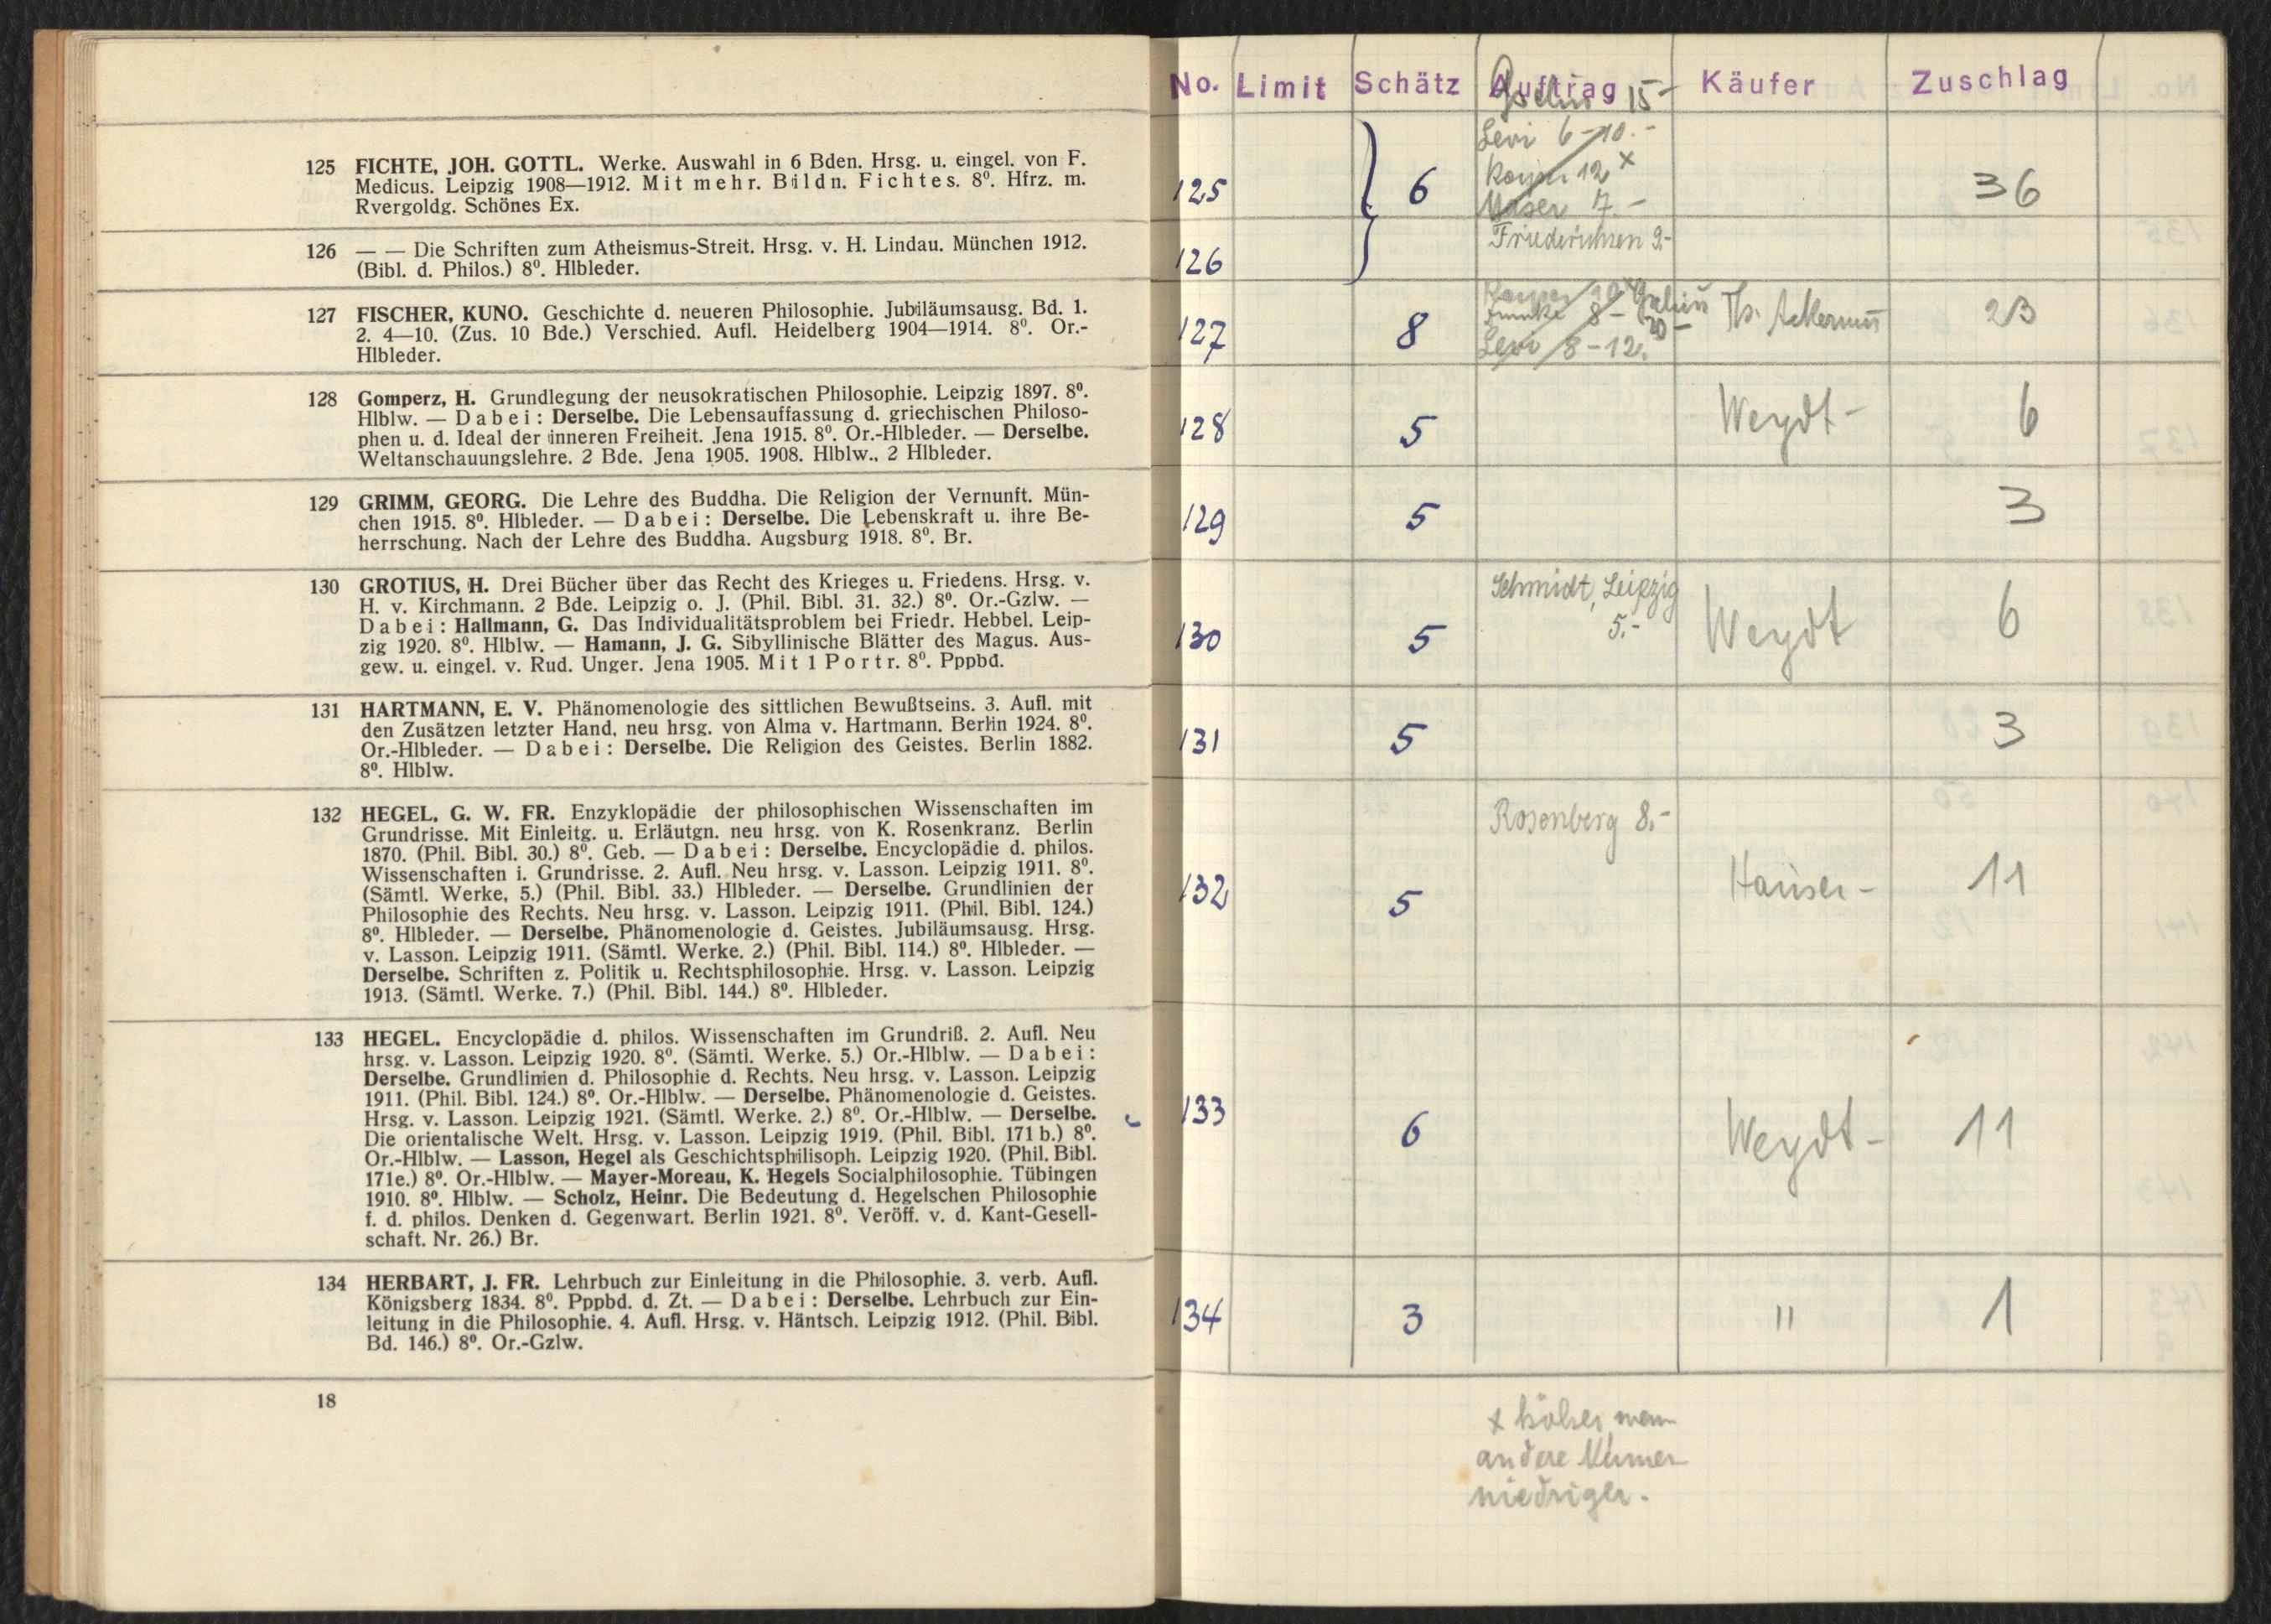 125 FICHTE, JOH. GOTTL. Werke. Auswahl in 6 Bden. Hrsg. u. eingel. von F.
Medicus. Leipzig 1908—1912. Mit mehr. Bildn. Fichtes. 8⁰. Hfrz. m.
Rvergoldg. Schönes Ex.
126 — — Die Schriften zum Atheismus-Streit. Hrsg. v. H. Lindau. München 1912.
(Bibl. d. Philos.) 8⁰. Hlbleder.
127 FISCHER, KUNO. Geschichte d. neueren Philosophie. Jubiläumsausg. Bd. 1.
2. 4—10. (Zus. 10 Bde.) Verschied. Aufl. Heidelberg 1904—1914. 8⁰. Or.-
Hlbleder.
128 Gomperz, H. Grundlegung der neusokratischen Philosophie. Leipzig 1897. 8⁰.
Hlblw. — Dabei: Derselbe. Die Lebensauffassung d. griechischen Philoso-
phen u. d. Ideal der inneren Freiheit. Jena 1915. 8⁰. Or.-Hlbleder. — Derselbe.
Weltanschauungslehre. 2 Bde. Jena 1905. 1908. Hlblw., 2 Hlbleder.
129 GRIMM, GEORG. Die Lehre des Buddha. Die Religion der Vernunft. Mün-
chen 1915. 8⁰. Hlbleder. — Dabei: Derselbe. Die Lebenskraft u. ihre Be-
herrschung. Nach der Lehre des Buddha. Augsburg 1918. 8⁰. Br.
130 GROTIUS, H. Drei Bücher über das Recht des Krieges u. Friedens. Hrsg. v.
H. v. Kirchmann. 2 Bde. Leipzig o. J. (Phil. Bibl. 31. 32.) 8⁰. Or.-Gzlw. —
Dabei: Hallmann, G. Das Individualitätsproblem bei Friedr. Hebbel. Leip-
zig 1920. 8⁰. Hlblw. — Hamann, J. G. Sibyllinische Blätter des Magus. Aus-
gew. u. eingel. v. Rud. Unger. Jena 1905. Mit 1 Portr. 8⁰. Pppbd.
131 HARTMANN, E. V. Phänomenologie des sittlichen Bewußtseins. 3. Aufl. mit
den Zusätzen letzter Hand, neu hrsg. von Alma v. Hartmann. Berlin 1924. 8⁰.
Or.-Hlbleder. — Dabei: Derselbe. Die Religion des Geistes. Berlin 1882.
8⁰. Hlblw.
132 HEGEL, G. W. FR. Enzyklopädie der philosophischen Wissenschaften im
Grundrisse. Mit Einleitg. u. Erläutgn. neu hrsg. von K. Rosenkranz. Berlin
1870. (Phil. Bibl. 30.) 8⁰. Geb. — Dabei: Derselbe. Encyclopädie d. philos.
Wissenschaften i. Grundrisse. 2. Aufl. Neu hrsg. v. Lasson. Leipzig 1911. 8⁰.
(Sämtl. Werke, 5.) (Phil. Bibl. 33.) Hlbleder. — Derselbe. Grundlinien der
Philosophie des Rechts. Neu hrsg. v. Lasson. Leipzig 1911. (Phil. Bibl. 124.)
8⁰. Hlbleder. — Derselbe. Phänomenologie d. Geistes. Jubiläumsausg. Hrsg.
v. Lasson. Leipzig 1911. (Sämtl. Werke. 2.) (Phil. Bibl. 114.) 8⁰. Hlbleder. —
Derselbe. Schriften z. Politik u. Rechtsphilosophie. Hrsg. v. Lasson. Leipzig
1913. (Sämtl. Werke. 7.) (Phil. Bibl. 144.) 8⁰. Hlbleder.
133 HEGEL. Encyclopädie d. philos. Wissenschaften im Grundriß. 2. Aufl. Neu
hrsg. v. Lasson. Leipzig 1920. 8⁰. (Sämtl. Werke. 5.) Or.-Hlblw. — Dabei:
Derselbe. Grundlinien d. Philosophie d. Rechts. Neu hrsg. v. Lasson. Leipzig
1911. (Phil. Bibl. 124.) 8⁰. Or.-Hlblw. — Derselbe. Phänomenologie d. Geistes.
Hrsg. v. Lasson. Leipzig 1921. (Sämtl. Werke. 2.) 8⁰. Or.-Hlblw. — Derselbe.
Die orientalische Welt. Hrsg. v. Lasson. Leipzig 1919. (Phil. Bibl. 171 b.) 8⁰.
Or.-Hlblw. — Lasson, Hegel als Geschichtsphilisoph. Leipzig 1920. (Phil. Bibl.
171e.) 8⁰. Or.-Hlblw. — Mayer-Moreau, K. Hegels Socialphilosophie. Tübingen
1910. 8⁰. Hlblw. — Scholz, Heinr. Die Bedeutung d. Hegelschen Philosophie
f. d. philos. Denken d. Gegenwart. Berlin 1921. 8⁰. Veröff. v. d. Kant-Gesell-
schaft. Nr. 26.) Br.
134 HERBART, J. FR. Lehrbuch zur Einleitung in die Philosophie. 3. verb. Aufl.
Königsberg 1834. 8⁰. Pppbd. d. Zt. — Dabei: Derselbe. Lehrbuch zur Ein-
leitung in die Philosophie. 4. Aufl. Hrsg. v. Häntsch. Leipzig 1912. (Phil. Bibl.
Bd. 146.) 8⁰. Or.-Gzlw.
18
No. Limit Schätz Auftrag Käufer Zuschlag
15-
Levi 6-10.-
12 x
7.-
125 6 36
Friederichsen 9.-
126
20
8-
Levi 8-12.
127 8 Th. Ackermann 23
128 5 Weydt - 6
129 5 3
Schmidt, Leipzig
5.-
130 5 Weydt 6
131 5 3
Rosenberg 8.-
132 5 Hauser - 11
133 6 Weydt - 11
134 3 " 1
x höher, wenn
andere
niedriger.